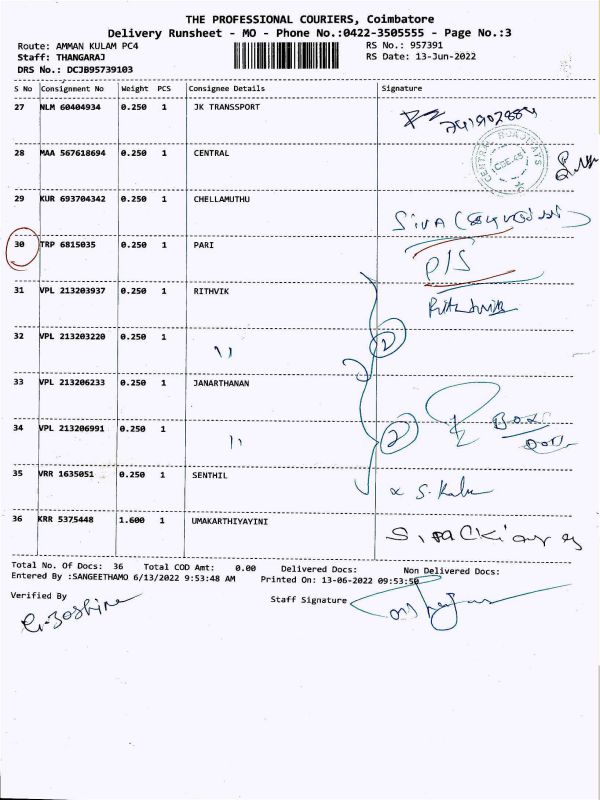 THE PROFESSIONAL COURIERS, Coimbatore
Delivery Runsheet - MO - Phone No.:0422-3505555 - Page No.:3
Route: AMMAN KULAM PC4 RS No.: 957391
Staff: THANGARAJ RS Date: 13-Jun-2022
DRS No.: DCJB95739103
S No Consignment No Weight PCS Consignee Details Signature
27 NLM 60404934 0.250 1 JK TRANSSPORT
28 MAA 567618694 0.250 1 CENTRAL CENTRAL ROADWAYS CBE.45
29 KUR 693704342 0.250 1 CHELLAMUTHU SIVA
30 TRP 6815035 0.250 1 PARI P/S
31 VPL 213203937 0.250 1 RITHVIK
32 VPL 213203220 0.250 1 11 2
33 VPL 213206233 0.250 1 JANARTHANAN
34 VPL 213206991 0.250 1 11 2
35 VRR 1635051 0.250 1 SENTHIL
36 KRR 5375448 1.600 1 UMAKARTHIYAYINI
Total No. Of Docs: 36 Total COD Amt: 0.00 Delivered Docs: Non Delivered Docs:
Entered By :SANGEETHAMO 6/13/2022 9:53:48 AM Printed On: 13-06-2022 09:53:50
Verified By Staff Signature